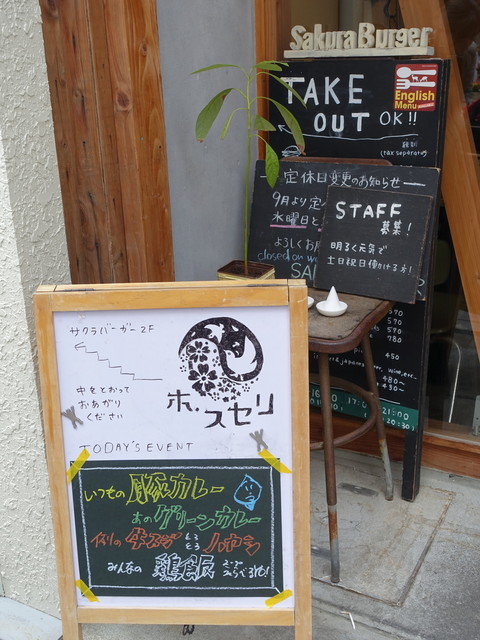 Sakura Burger
TAKE
OUT OK!!
English
Menu
税別
(tax separate)
定休日変更のお知らせ
9月より定
水曜日と
よろしくお
closed on we
SA
STAFF
募集!
明るく元気で
土日祝日働ける方!
570
570
450
480
430
サクラバーガー2F
中をとおって
おあがり
ください
ホ・スセリ
TODAY'S EVENT
いつもの 豚カレー
あの グリーンカレー
牛スジ ハヤシ
みんなの 鶏飯